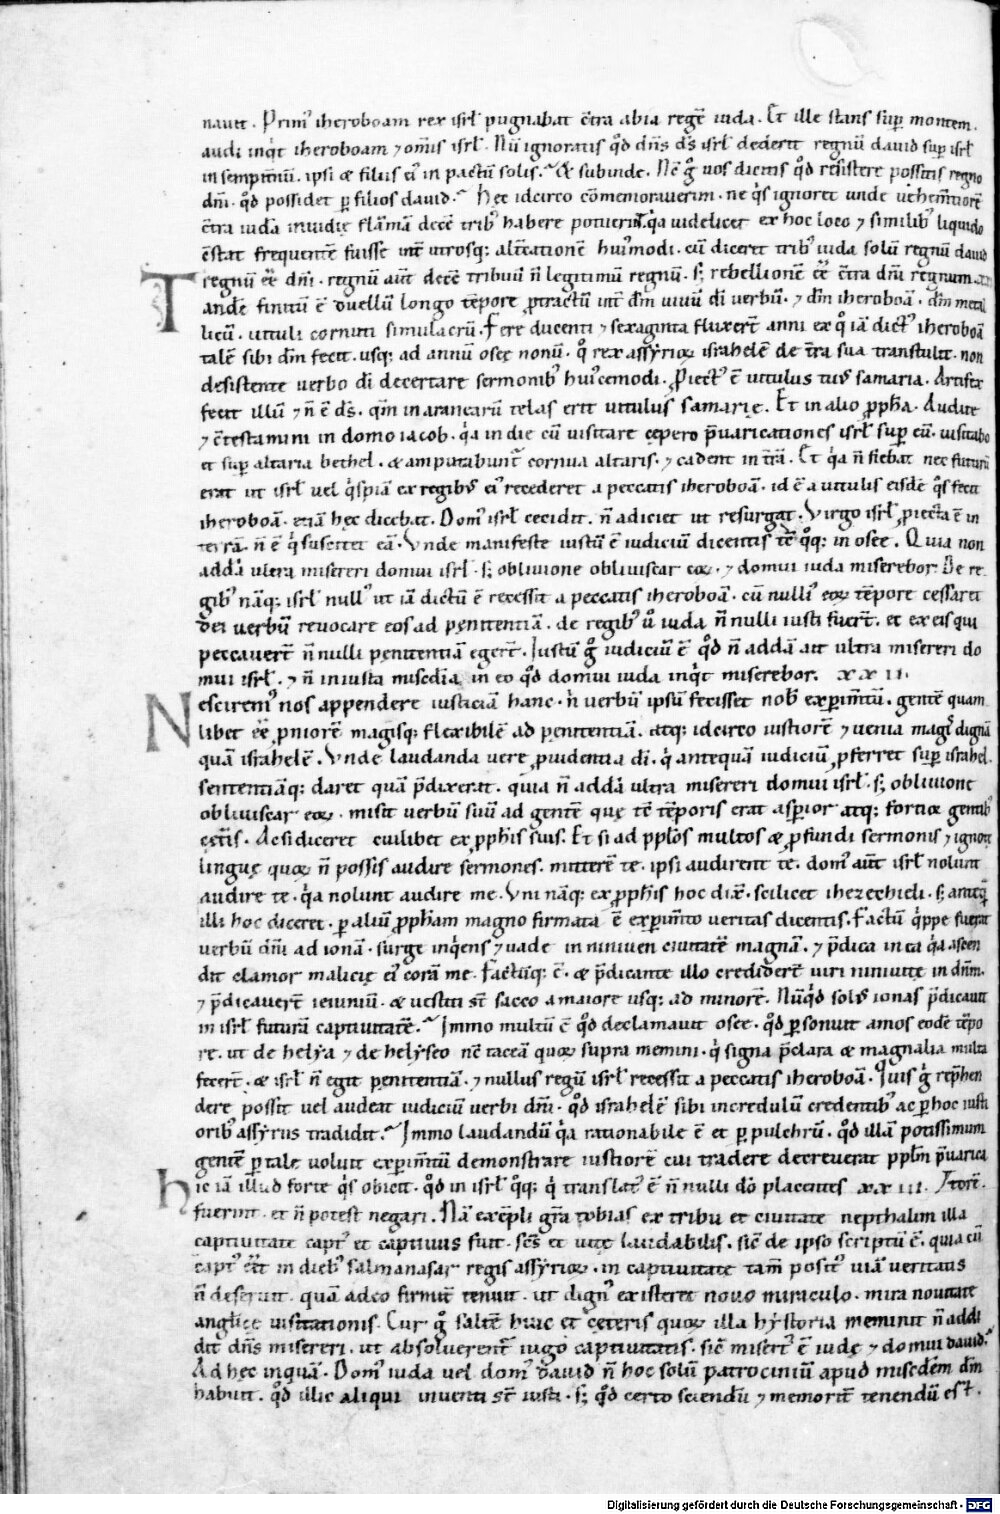 nauit. Primꝰ iheroboam rex isrl̄ pugnabat c̄tra abia regē iuda. Et ille stans sup̄ montem.
audi inqͥt iheroboam ⁊ om̄is isrl̄. Nū ignoratis qd̄ dn̄s dš isrl̄ dederit regnū dauid sup̄ isrl̄
in sempitn̄ū. ipsi & filiis eiꝰ in pactū solis. & subinde. Nc̄ gͦ uos dicitis qd̄ resistere possitis regno
dn̄i. qd̄ possidet ꝑ filios dauid. Hęc idcirco cōmemorauerim. ne qͥs ignoret unde uehem̄tiorē
c̄tra iudā inuidię flāmā decē tribꝰ habere potuerint. qͥa uidelicet ex hoc loco ⁊ similibꝰ liquido
c̄stat frequentē fuisse int̄ utrosq; alt̄cationē huiꝰmodi. cū diceret tribꝰ iuda solū regnū dauid
regnū eē̄ dn̄i. regnū aūt decē tribuū n̄ legitimū regnū. s; rebellionē eē̄ c̄tra dn̄i regnum.
Tandē finitū ē duellū longo tēpore ꝓtractū int̄ dn̄m uiuū dī uerbū. ⁊ dn̄m iheroboā. dn̄m metal
licū. uituli cornuti simulacrū. Fere ducenti ⁊ sexaginta fluxer̄t anni ex qͦ iā dictꝰ iheroboā
talē sibi dn̄m fecit. usq; ad annū osee nonū. qͦ rex assyrioꝝ israhelē de t̄ra sua transtulit. non
desistente uerbo dī decertare sermonibꝰ huiꝰcemodi. ꝓiectꝰ ē uitulus tuꝰ samaria. Artifex
fecit illū ⁊ n̄ ē dš. qm̄ in aranearū telas erit uitulus samarię. Et in alio ꝓph̄a. Audite
⁊ c̄testamini in domo iacob. qͥa in die cū uisitare cępero p̄uaricationes isrl̄ sup̄ eū. uisitabo
et sup̄ altaria bethel. & amputabunt̄ cornua altaris. ⁊ cadent in t̄rā. Et qͥa n̄ fiebat nec futurū
erat ut isrl̄ uel qͥspiā ex regibꝰ eiꝰ recederet a peccatis iheroboā. id ē a uitulis eisdē qͦs fecit
iheroboā. etiā hęc dicebat. Domꝰ isrl̄ cecidit. n̄ adiciet ut resurgat. Virgo isrl̄ ꝓiecta ē in
terrā. n̄ ē qͥ suscitet eā. Vnde manifeste iustū ē iudiciū dicentis tc̄ qͦq; in osee. Quia non
addā ultra misereri domui isrl̄. s; obliuione obliuiscar eoꝝ. ⁊ domui iuda miserebor. De re
gibꝰ nāq; isrl̄ nullꝰ ut iā dictū ē recessit a peccatis iheroboā. cū nulliꝰ eoꝝ tēpore cessaret
dei uerbū reuocare eos ad pęnitentiā. de regibꝰ u̇ iuda n̄ nulli iusti fuer̄t. et ex eis qui
peccauer̄t n̄ nulli pęnitentiā eger̄t. Iustū gͦ iudiciū ē qd̄ n̄ addā ait ultra misereri do
mui isrl̄. ⁊ n̄ iniusta mis̄cdia in eo qd̄ domui iuda inqͥt miserebor. xxii.
Nescirem̄ nos appendere iusticiā hanc. nͥ uerbū ipsum fecisset nob̄ exꝑim̄tū. gentē quam
libet eē̄ ꝓniorē magisq; flexibilē ad pęnitentiā. atq; idcirco iustiorē ⁊ uenia magͥs dignā
quā israhelē. Vnde laudanda uere ꝓuidentia dī. qͥ antequā iudiciū ꝓferret sup̄ israhel.
sententiāq; daret quā p̄dixerat. quia n̄ addā ultra misereri domui isrl̄. s; obliuione
obliuiscar eoꝝ. misit uerbū suū ad gentē quę tc̄ tēporis erat asꝑior atq; fortior gentibꝰ
cęt̄is. Ac si diceret cuilibet ex ꝓph̄is suis. Et si ad pplōs multos & ꝓfundi sermonis ⁊ ignotę
linguę quoꝝ n̄ possis audire sermones. mitterē te. ipsi audirent te. domꝰ aūt isrl̄ nolunt
audire te. qͥa nolunt audire me. Vni nāq; ex ꝓph̄is hoc dix̄. scilicet ihezechieli. s; antiqͣ
illi hoc diceret. ꝑ aliū ꝓph̄am magno firmata ē exꝑim̄to ueritas dicentis. Factū qͥppe fuerat
uerbū dn̄i ad ionā. surge inqͥens ⁊ uade in niniuen ciuitatē magnā. ⁊ p̄dica in ea qͥa ascen
dit clamor malicię eiꝰ corā me. Factūq; ē. & p̄dicante illo crediderc̄t uiri niniuitę in dn̄m.
⁊ p̄dicauer̄t ieiuniū. & uestiti st̄ sacco a maiore usq; ad minorē. Nūqͥd solꝰ ionas p̄dicauit
in isrl̄ futurā captiuitatē. Immo multū ē qd̄ declamauit osee. qd̄ ꝑsonuit amos eodē tēpo
re. ut de helya ⁊ de helyseo nc̄ taceā quoꝝ supra memini. qͥ signa p̄clara & magnalia multa
fecer̄t. & isrl̄ n̄ egit pęnitentiā. ⁊ nullus regū isrl̄ recessit a peccatis iheroboā. Quis gͦ rep̄hen
dere possit uel audeat iudiciū uerbi dn̄i. qd̄ israhelē sibi incredulū credentibꝰ ac ꝑ hoc iusti
oribꝰ assyriis tradidit. Immo laudandū qͥa rationabile ē et ꝑ pulchrū. qd̄ illā potissimum
gentē ꝑ tale uoluit exꝑim̄tū demonstrare iustiorē cui tradere decreuerat pplm̄ p̄uarica
Hic iā illud forte qͥs obicit. qd̄ in isrl̄ qͦq; qͥ translatꝰ ē n̄ nulli dō placentes xxiii. torē.
fuerint. et n̄ potest negari. Nā exēpli gr̄a tobias ex tribu et ciuitate nepthalim illa
captiuitate captꝰ et captiuus fuit. scs̄ et uitę laudabilis. sic̄ de ipso scriptū ē. quia cū
captꝰ eēt in diebꝰ salmanasar regis assyrioꝝ. in captiuitate tam̄ positꝰ uiā ueritatis
n̄ deseruit. quā adeo firmit̄ tenuit. ut dignꝰ existeret nouo miraculo. mira nouitate
angelicę uisitationis. Cur gͦ saltē huic et cęteris quoꝝ illa hystoria meminit n̄ addi
dit dn̄s misereri. ut absoluerent̄ iugo captiuitatis. sic̄ misert̄ ē iudę ⁊ domui dauid.
Ad hęc inquā. Domꝰ iuda uel domꝰ dauid n̄ hoc solū patrociniū apud mis̄cdem dn̄m
habuit. qd̄ illic aliqui inuenti st̄ iusti. s; qd̄ certo sciendū ⁊ memorit̄ tenendū est.
Digitalisierung gefördert durch die Deutsche Forschungsgemeinschaft - DFG